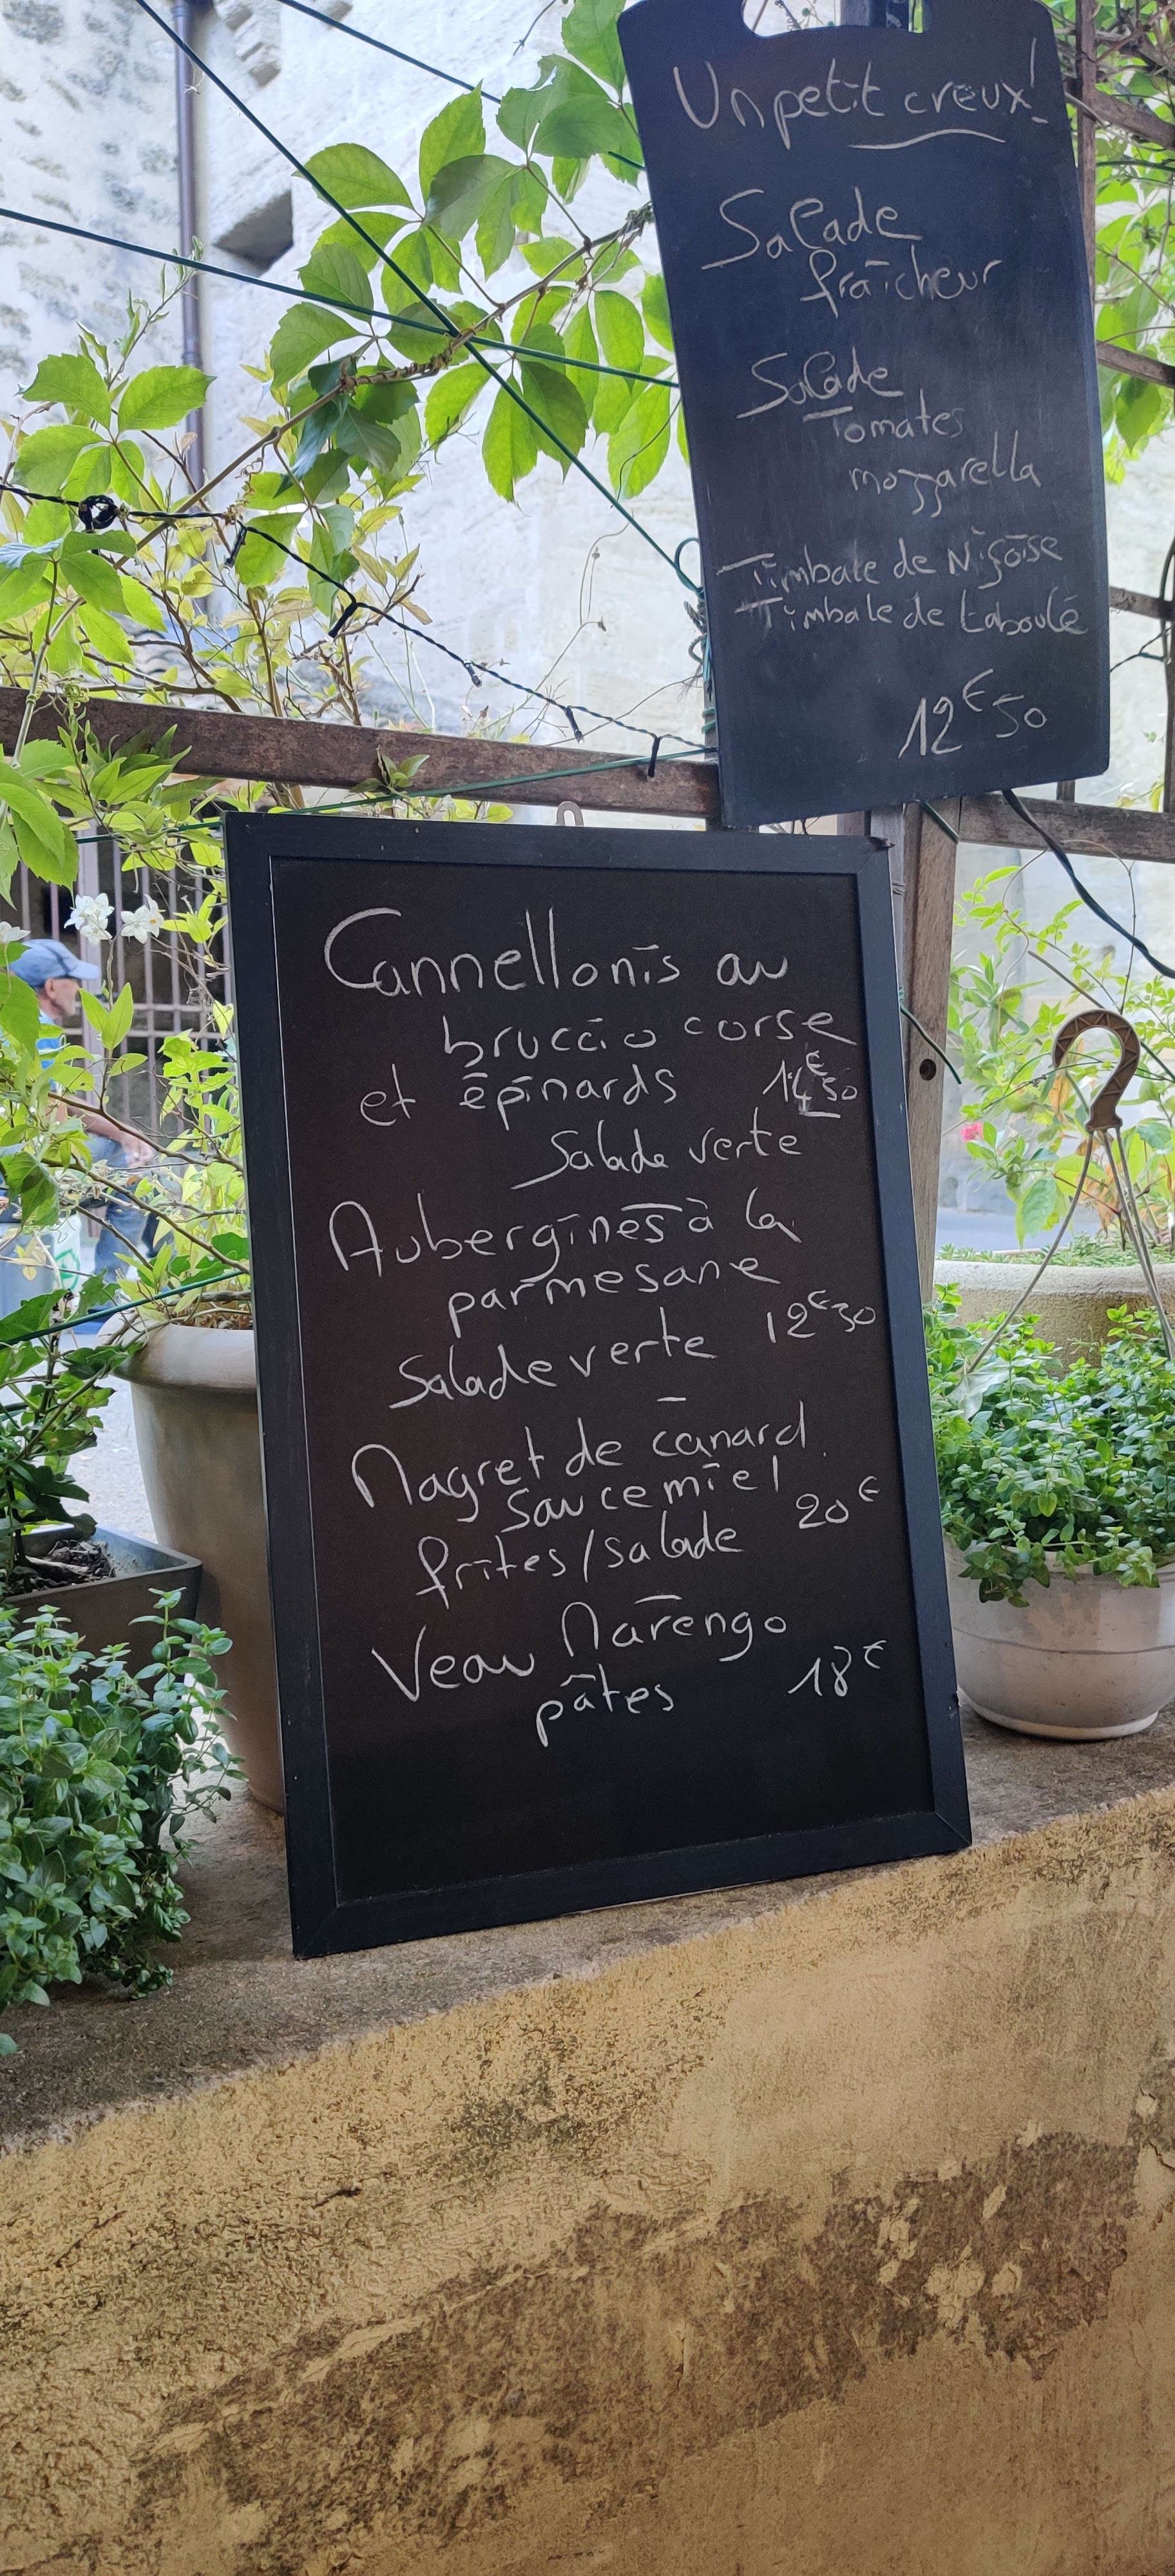 Un petit creux!
Salade
fraîcheur
Salade
Tomates
mozzarella
Timbale de Niçoise
Timbale de taboulé
12€50
Cannellonis au
bruccio corse
et épinards 14€50
Salade verte
Aubergines à la
parmesane
Salade verte 12€30
Magret de canard
sauce miel
frites/salade 20€
Veau Marengo
pâtes 18€